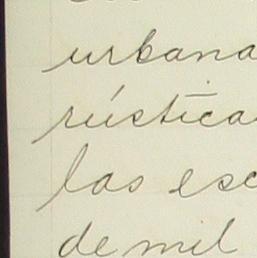 urbana
rústica
las esc
de mil